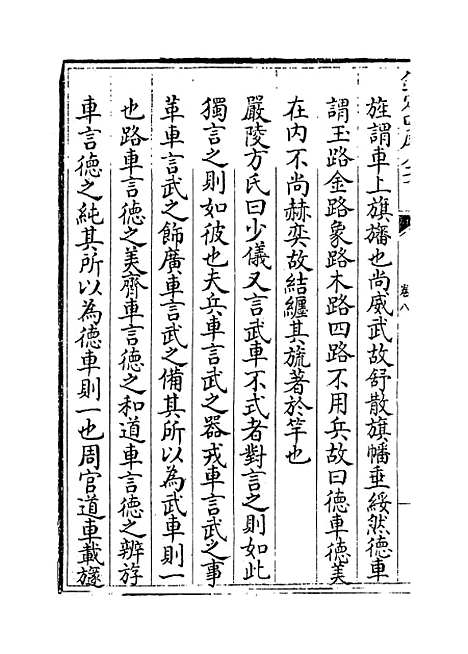 旌謂車上旗旛也尚威武故舒散旗幡垂綏然德車
謂玉路金路象路木路四路不用兵故曰德車德美
在内不尚赫奕故結纏其旒著於竿也
嚴陵方氏曰少儀又言武車不式者對言之則如此
獨言之則如彼也夫兵車言武之器戎車言武之事
革車言武之飾廣車言武之備其所以為武車則一
也路車言德之美齊車言德之和道車言德之辨斿
車言德之純其所以為德車則一也周官道車載旞
卷八